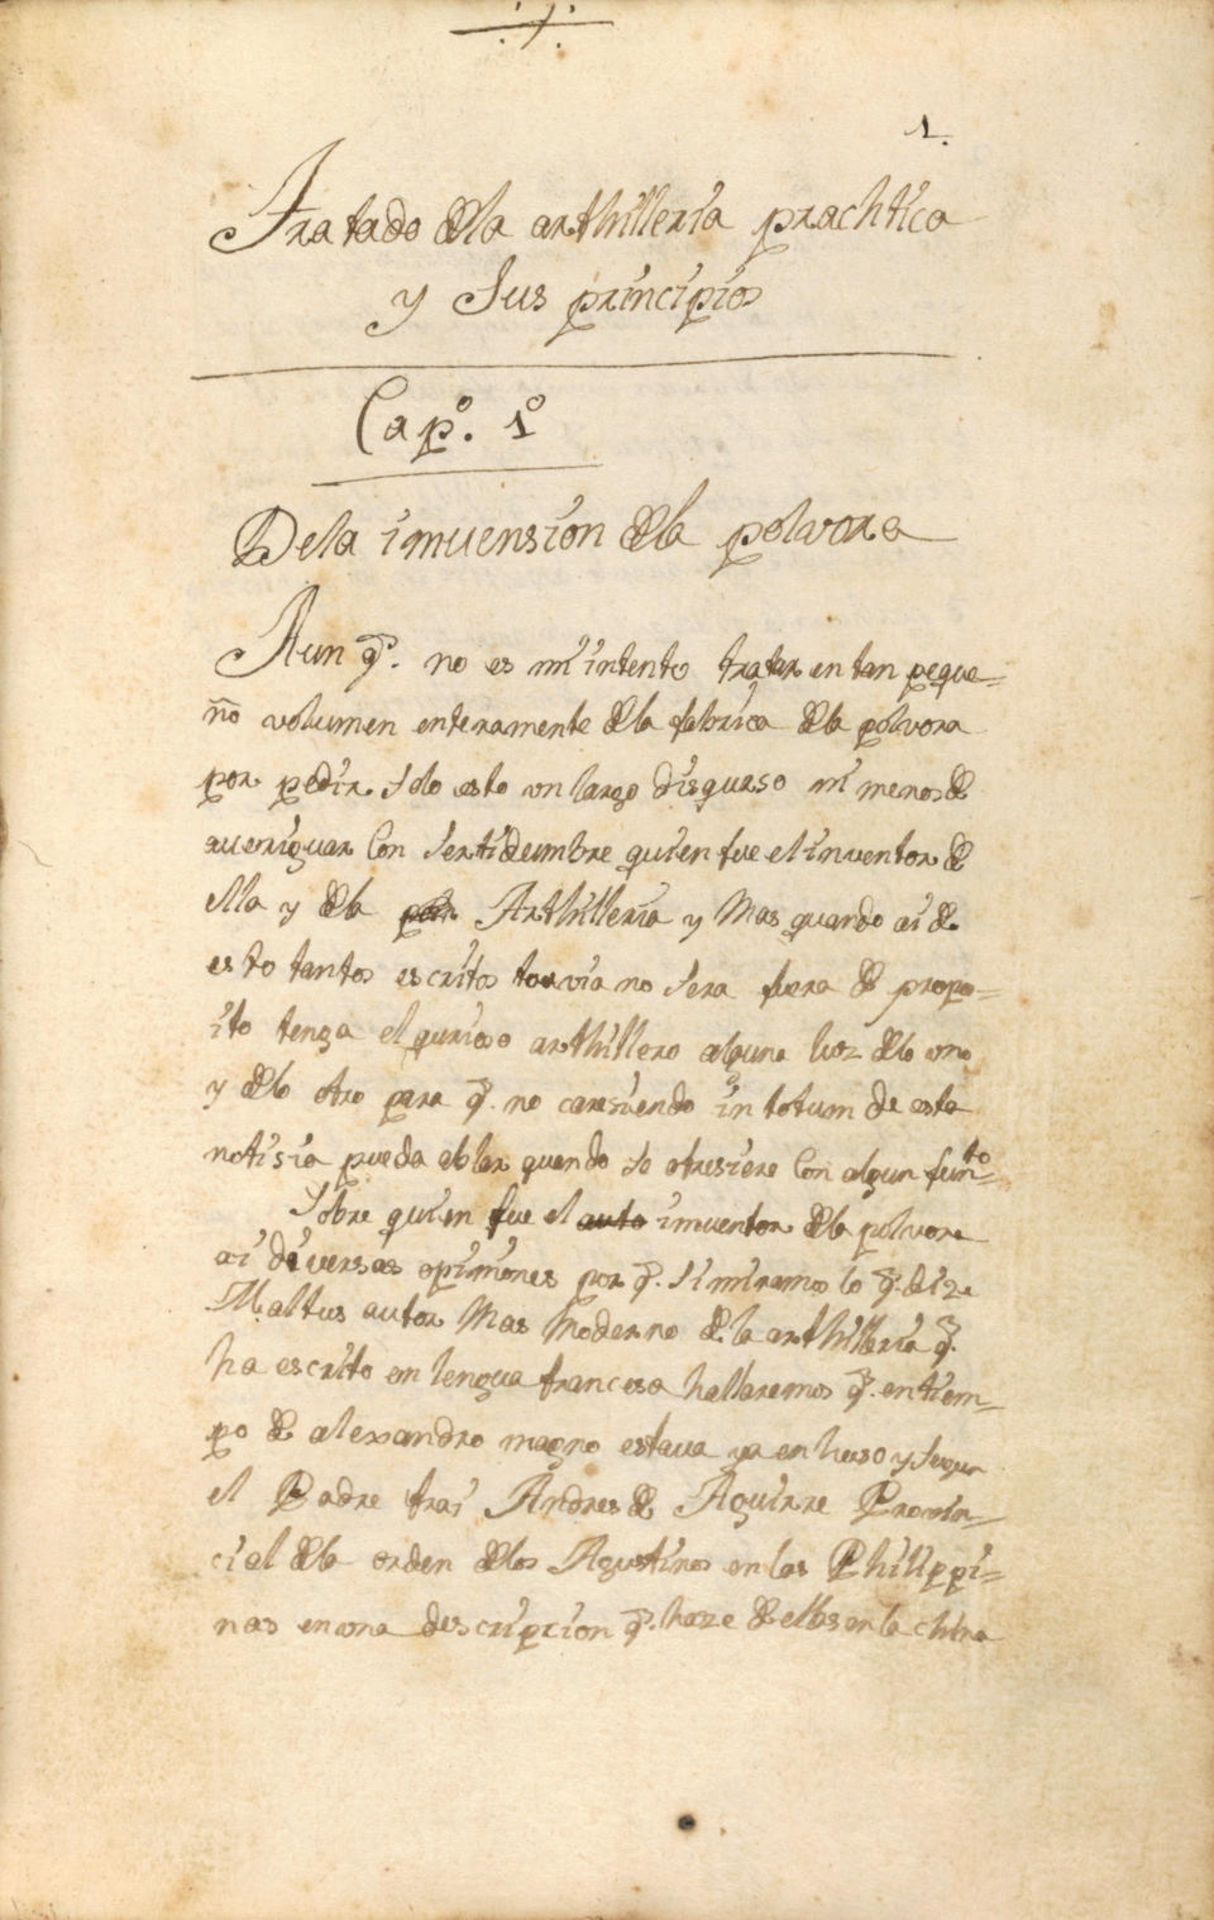 1.
Tratado dela arthilleria prachtica
y Sus principios
Capº. 1º
Dela imuension dela polvora
Aun q. no es mi intento tratar en tan peque=
ño volumen enteramente dela fabrica dela polvora
por pedir solo esto vn largo disqurso ni menos de
aueriguar Con Sertidumbre quien fue el inventor de
ella y dela Arthilleria y Mas quando ai de
esto tantos escritos tovia no sera fuera de propo=
ito tenga el qurioso arthillero alguna luz delo vno
y delo otro para q. no caresiendo in totum de esta
notisia pueda ablar quando se ofresiere Con algun funto=
Sobre quien fue el auto imuentor dela polvora
ai diversas opiniones por q. Si miramos lo q. dize
Maltus autor Mas Moderno de la arthilleria q.
ha escrito en lengua francesa hallaremos q. en tiem=
po de alexandro magno estaua ya en huso y Segun
el Padre frai Andres de Aguirre Provin=
cial dela orden delos Agustinos en las Philippi=
nas en vna descripcion q. haze de ellas en la china